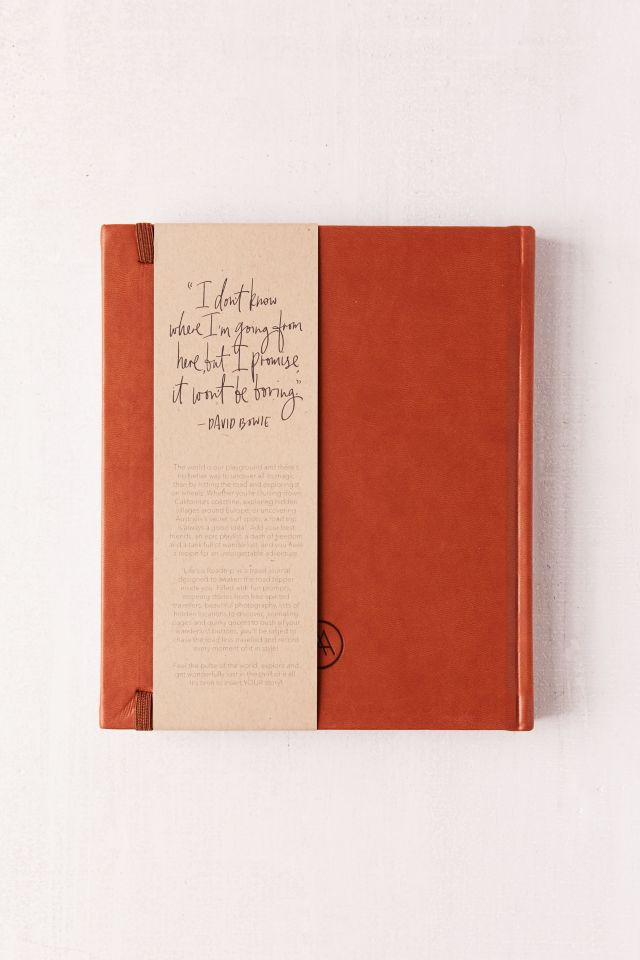 "I don't know
where I'm going from
here, but I promise
it won't be boring."
- DAVID BOWIE
The world is our playground and there's
no better way to uncover all its magic
than by hitting the road and exploring it
on wheels. Whether you're cruising down
California's coastline, exploring hidden
villages around Europe, or uncovering
Australia's secret surf spots, a road trip
is always a good idea! Add your best
friends, an epic playlist, a dash of freedom
and a tank full of wanderlust, and you have
a recipe for an unforgettable adventure.
is a travel journal
designed to awaken the road tripper
inside you. Filled with fun prompts,
inspiring stories from like-spirited
travellers, beautiful photography, lists of
hidden locations to discover, journaling
pages and quirky quotes to push all your
wanderlust buttons, you'll be raring to
chase the road less travelled and record
every moment of it in style!
Feel the pulse of the world, explore and
get wonderfully lost in the thrill of it all.
It's time to insert YOUR story!